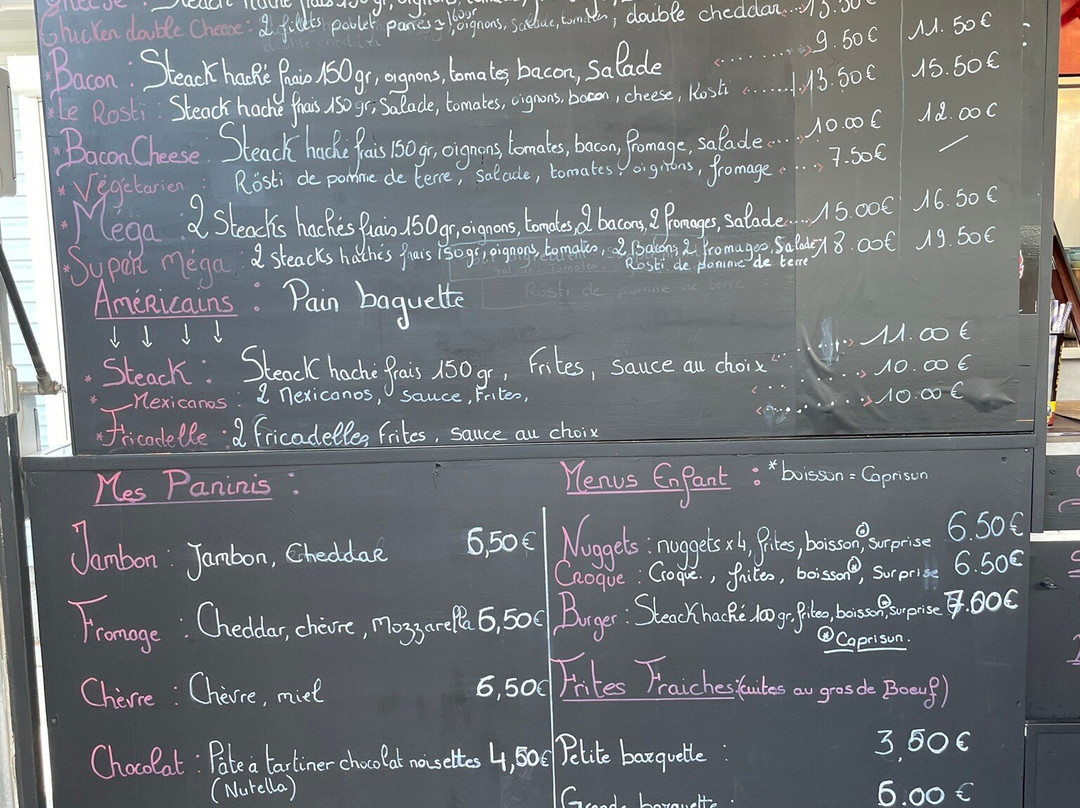 Cheese : Steack haché frais 150 gr, oignons,
Chicken double Cheese : 2 filets poulet panés = 160gr, oignons, salade, tomates, double cheddar 13.50 €
Bacon : Steack haché frais 150 gr, oignons, tomates, bacon, Salade 9.50 € 11.50 €
* Le Rosti : Steack haché frais 150 gr, Salade, tomates, oignons, bacon, cheese, Rosti 13.50 € 15.50 €
* Bacon Cheese Steack haché frais 150 gr, oignons, tomates, bacon, fromage, salade 10.00 € 12.00 €
* Végétarien : Rösti de pomme de terre, Salade, tomates, oignons, fromage 7.50 € /
* Méga : 2 Steacks hachés frais 150 gr, oignons, tomates, 2 bacons, 2 fromages, Salade 15.00 € 16.50 €
* Super Méga : 2 steacks hachés frais 150 gr, oignons, tomates, 2 Bacons, 2 fromages, Salade 18.00 € 19.50 €
Rosti de pomme de terre
Américains : Pain baguette
↓ ↓ ↓ ↓
* Steack : Steack haché frais 150 gr, Frites, sauce au choix 11.00 €
* Mexicanos : 2 Mexicanos, sauce, Frites, 10.00 €
* Fricadelle : 2 Fricadelles, Frites, sauce au choix 10.00 €
Mes Paninis :
Jambon : Jambon, Cheddar 6,50 €
Fromage : Cheddar, chèvre, Mozzarella 6,50 €
Chèvre : Chèvre, miel 6,50 €
Chocolat : Pâte à tartiner chocolat noisettes 4,50 €
(Nutella)
Menus Enfant : * boisson = Caprisun
Nuggets : nuggets x 4, frites, boisson*, surprise 6.50 €
Croque : Croque., frites, boisson*, Surprise 6.50 €
Burger : Steack haché 100 gr, frites, boisson*, surprise 7.00 €
* Caprisun.
Frites Fraiches : (cuites au gras de Boeuf)
Petite barquette : 3,50 €
Grande barquette : 6.00 €